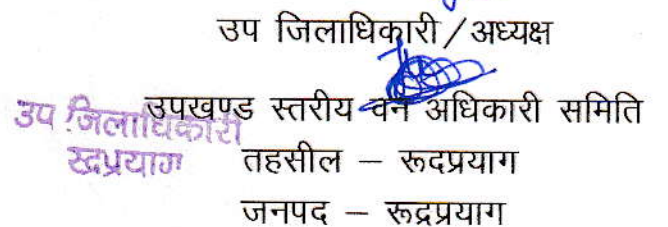 उप जिलाधिकारी/अध्यक्ष
उपखण्ड स्तरीय वन अधिकारी समिति
उप जिलाधिकारी
रुद्रप्रयाग
तहसील – रूदप्रयाग
जनपद – रूद्रप्रयाग